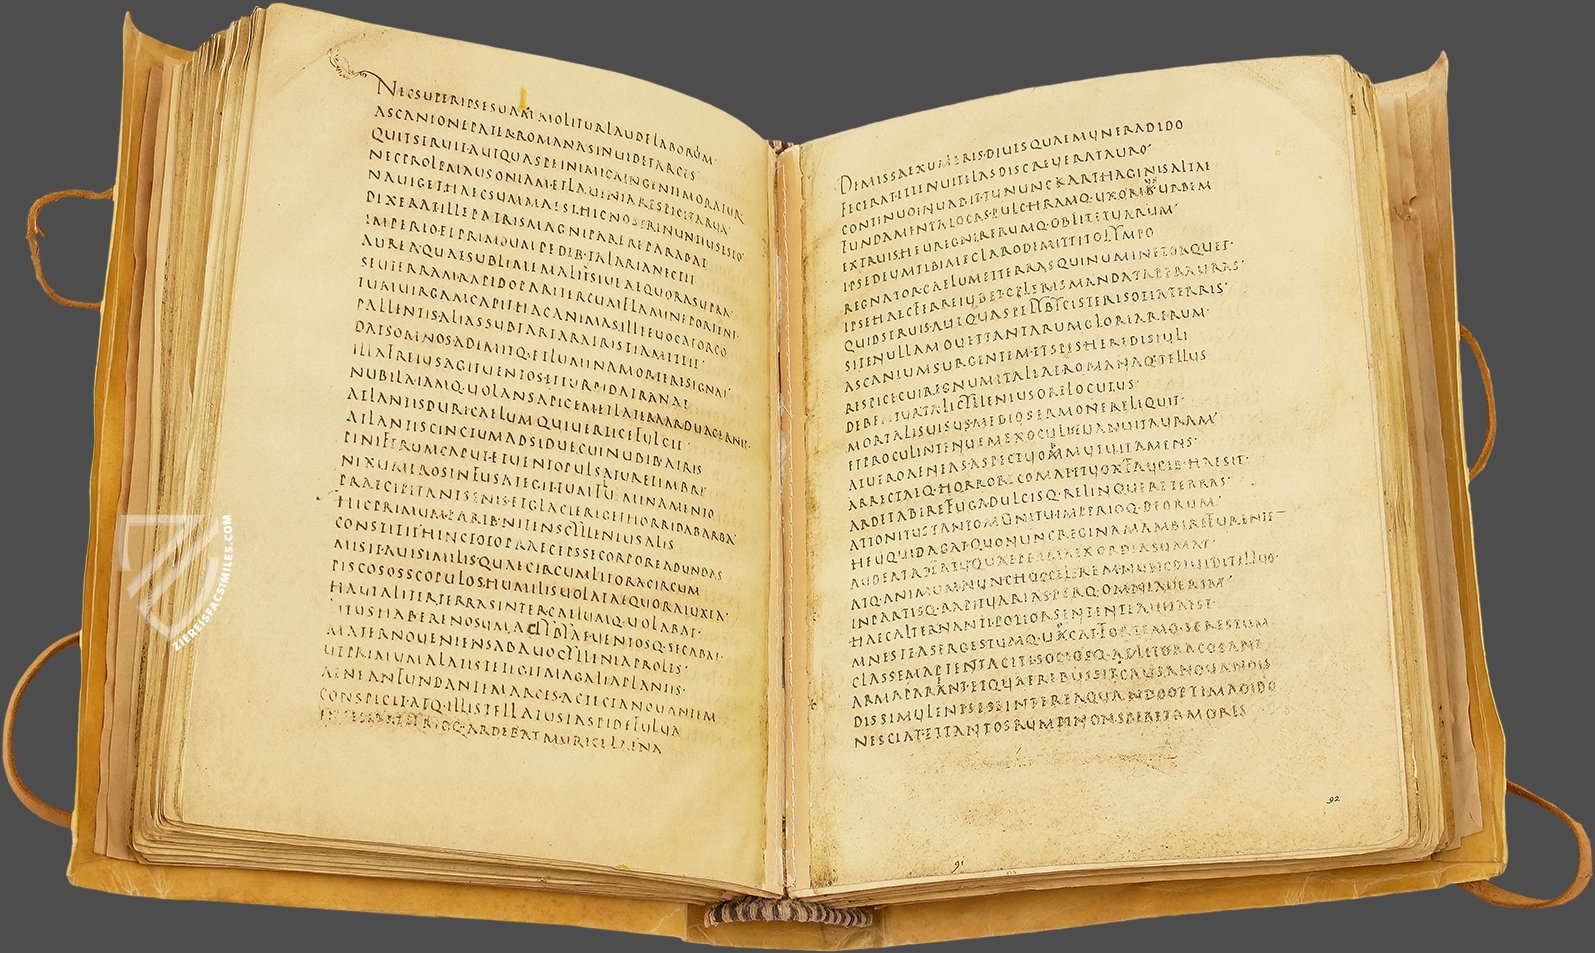 NECSUPERIPSESUAMMOLITURLAUDELABOREM·
ASCANIONEPATERROMANASINUIDETARCES·
QUITSTRUIT·AUTQUASPEINIMICAINGENTEMORATUR
NECPROLEMAUSONIAMETLAUINIARESPICITARVA·
NAUIGETHAECSUMMAEST·HICNOSTRINUNTIUSESTO·
DIXERATILLEPATRISMAGNIPAREREPARABAT
IMPERIO·ETPRIMUMPEDIB·TALARIANECTIT
AUREAQUAESUBLIMEMALITSIUEAEQUORASUPRA·
SEUTERRAMRAPIDOPARITERCUMFLAMINEPORTENT·
TUMUIRGAMCAPITHACANIMASILLEEUOCATORCO
PALLENTIS·ALIASSUBTARTARATRISTIAMITTIT·
DATSOMNOSADIMITQ·ETLUMINAMORTERESIGNAT·
ILLAFRETUSAGITUENTOSETTURBIDATRANAT
NUBILAIAMQ·UOLANSAPICEMETLATERAARDUACERNIT·
ATLANTISDURICAELUMQUIUERTICEFULCIT·
ATLANTISCINCTUMADSIDUECUINUBIB·ATRIS
PINIFERUMCAPUTETUENTOPULSATURETIMBRI·
NIXUMEROSINFUSATEGITTUMFLUMINAMENTO
PRAECIPITANTSENISETGLACIERIGETHORRIDABARBA·
HICPRIMUMPARIB·NITENSCYLLENIUSALIS
CONSTITITHINCTOTOPRAECEPSSECORPOREADUNDAS
MISITAUISIMILISQUAECIRCUMLITORACIRCUM
PISCOSOSSCOPULOSHUMILISUOLATAEQUORAIUXTA·
HAUTALITERTERRASINTERCAELUMQ·UOLABAT·
LITUSHARENOSUMACLIBYAEUENTOSQ·SECABAT·
MATERNOUENIENSABAUOCYLLENIAPROLES·
UTPRIMUMALATISTETIGITMAGALIAPLANTIS·
AENEANFUNDANTEMARCES·ACTECTANOUANTEM
CONSPICIT·ATQ·ILLISTELLATUSIASPIDEFULUA
ARDEBATMURICELAENA
DEMISSAEXUMERIS·DIUESQUAEMUNERADIDO
FECERAT·ETTENUITELASDISCREVERATAURO·
CONTINUOINUADIT·TUNUNCKARTHAGINISALTAE
FUNDAMENTALOCASPULCHRAMQ·UXORIUSURBEM
EXTRUIS·HEUREGNIRERUMQ·OBLITETUARUM·
IPSEDEUMTIBIMECLARODEMITTITOLYMPO
REGNATORCAELUMETTERRASQUINUMINETORQUET·
IPSEHAECFERREIUBETCELERISMANDATAPERAURAS·
QUIDSTRUIS·AUTQUASPELIBYCISTERISOTIATERRIS·
SITENULLAMOUETTANTARUMGLORIARERUM·
ASCANIUMSURGENTEMETSPESHEREDISIULI
RESPICECUIREGNUMITALIAEROMANAQ·TELLUS
DEBETURTALICYLLENIUSORELOCUTUS·
MORTALISUISUSMEDIOSERMONERELIQUIT·
ETPROCULINTENUEMEXOCULISEUANUITAURAM·
ATUEROAENEASASPECTUOMMUTUITAMENS·
ARRECTAEQ·HORRORECOMAEETUOXFAUCIB·HAESIT·
ARDETABIREFUGADULCISQ·RELINQUERETERRAS·
ATTONITUSTANTOMONITUIMPERIOQ·DEORUM·
HEUQUIDAGAT·QUONUNCREGINAMAMBIREFURENTE
AUDEATADFATUQUAEPRIMAEXORDIASUMAT·
ATQ·ANIMUMNUNCHUCCELEREMNUNCDIUIDITILLUC·
INPARTISQ·RAPITUARIASPERQ·OMNIAUERSAT·
HAECALTERNANTIPOTIORSENTENTIAUISAEST·
MNESTEASERGESTUMQ·UOCATFORTEMQ·SERESTUM
CLASSEMAPTENTACITISOCIOSQ·ADLITORACOGANT
ARMAPARENTETQUAEREBUSSITCAUSANOUANDIS
DISSIMULENTSESEINTEREAQUANDOOPTIMADIDO
NESCIATETTANTOSRUMPINONSPERETAMORES
92
91
ZIEREISFACSIMILES.COM